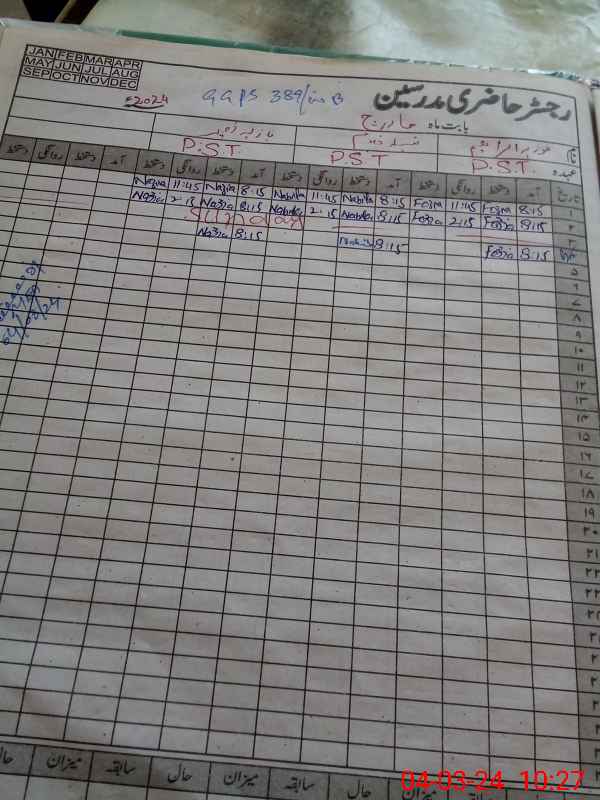 JAN FEB MAR APR
MAY JUN JUL AUG
SEP OCT NOV DEC
2024
GGPS 389/
رجسٹر حاضری مدرسین
بابت ماہ مارچ
نام
P.S.T. P.S.T P.S.T.
عہدہ
تاریخ آمد دستخط روانگی دستخط آمد دستخط روانگی دستخط آمد دستخط روانگی دستخط آمد دستخط روانگی دستخط
۱ 8:15 Fozia 11:45 Fozia 8:15 Nabila 11:45 Nabila 8:15 Nazia 11:45 Nazia
۲ 8:15 Fozia 2:15 Fozia 8:15 Nabila 2:15 Nabila 8:15 Nazia 2:15 Nazia
۳ Sunday
8:15 Fozia 8:15 Nabila 8:15 Nazia
۵
۶
۷
۸
۹
۱۰
۱۱
۱۲
۱۳
۱۴
۱۵
۱۶
۱۷
۱۸
۱۹
۲۰
۲۱
۲۲
04/03/24
حال سابقہ میزان حال سابقہ میزان حال سابقہ میزان حال
04-03-24 10:27